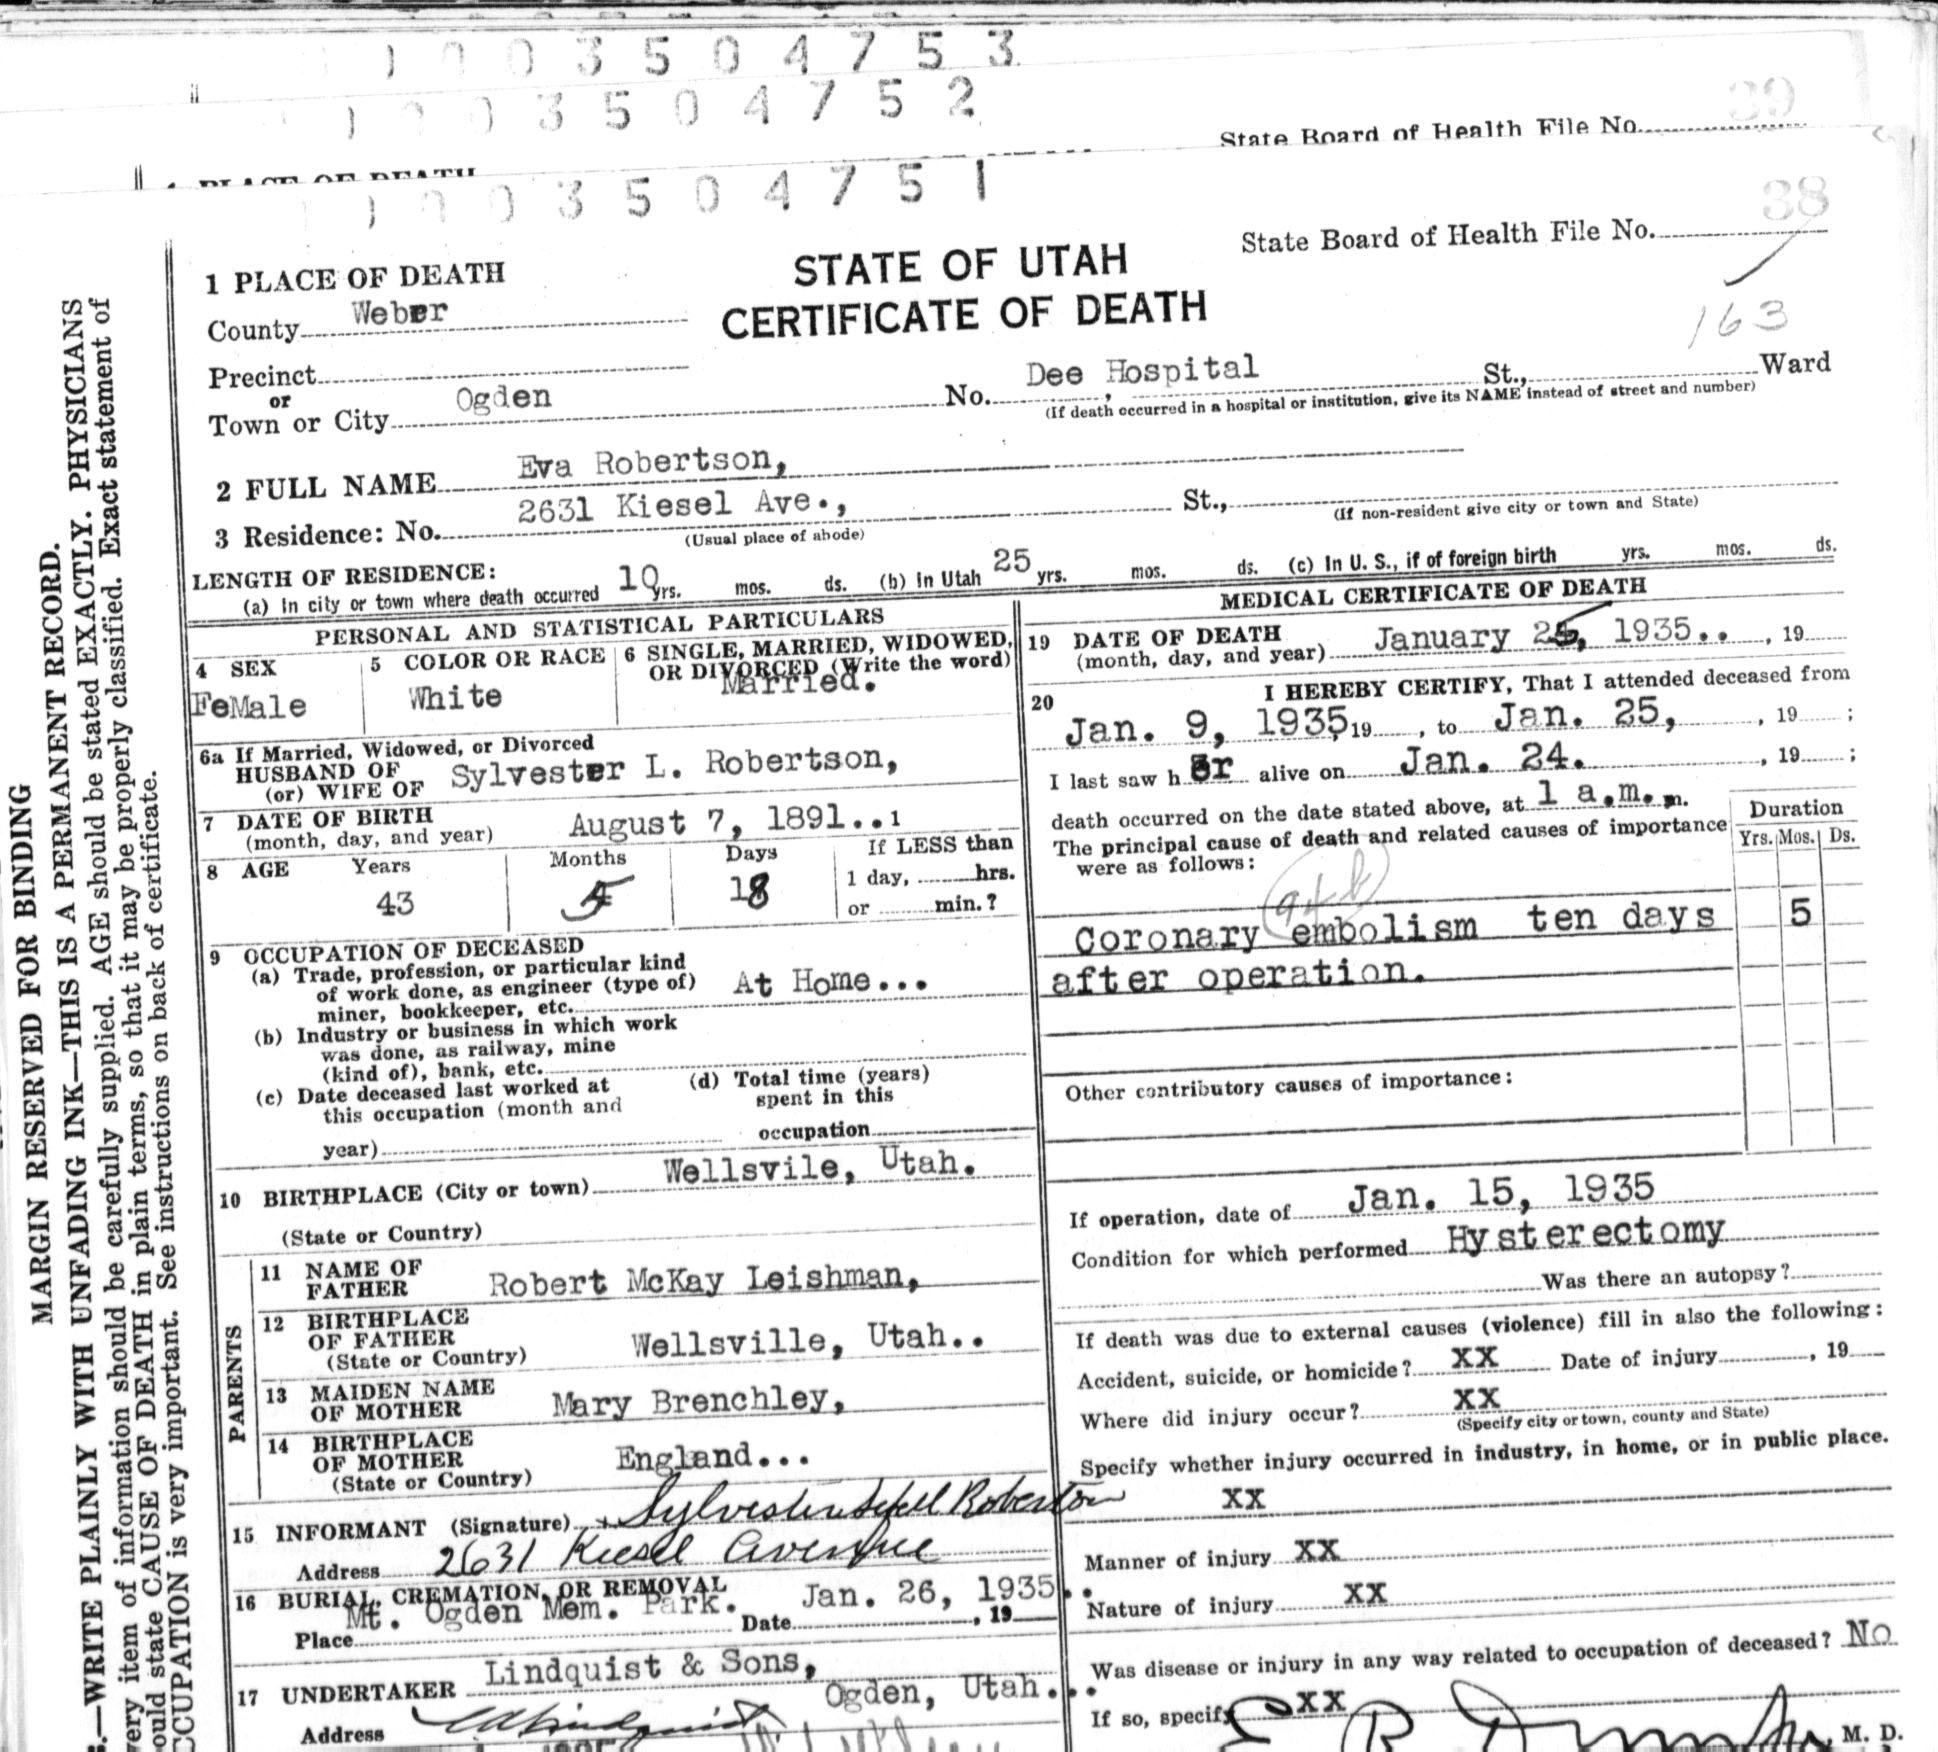 1003504753
1003504752
39
State Board of Health File No.
1 PLACE OF DEATH
1003504751
38
State Board of Health File No.
163
STATE OF UTAH
CERTIFICATE OF DEATH
1 PLACE OF DEATH
County Weber
Precinct
or
Town or City Ogden No. Dee Hospital, St., Ward
(If death occurred in a hospital or institution, give its NAME instead of street and number)
2 FULL NAME Eva Robertson,
3 Residence: No. 2631 Kiesel Ave., St.,
(Usual place of abode) (If non-resident give city or town and State)
LENGTH OF RESIDENCE:
(a) In city or town where death occurred 10 yrs. mos. ds. (b) In Utah 25 yrs. mos. ds. (c) In U. S., if of foreign birth yrs. mos. ds.
PERSONAL AND STATISTICAL PARTICULARS
4 SEX
FeMale
5 COLOR OR RACE
White
6 SINGLE, MARRIED, WIDOWED,
OR DIVORCED (Write the word)
Married.
6a If Married, Widowed, or Divorced
HUSBAND OF
(or) WIFE OF Sylvester L. Robertson,
7 DATE OF BIRTH
(month, day, and year) August 7, 1891..1
8 AGE Years Months Days If LESS than
1 day, hrs.
or min.?
43 5 18
9 OCCUPATION OF DECEASED
(a) Trade, profession, or particular kind
of work done, as engineer (type of)
miner, bookkeeper, etc. At Home...
(b) Industry or business in which work
was done, as railway, mine
(kind of), bank, etc.
(c) Date deceased last worked at
this occupation (month and
year)
(d) Total time (years)
spent in this
occupation
10 BIRTHPLACE (City or town) Wellsvile, Utah.
(State or Country)
PARENTS
11 NAME OF
FATHER Robert McKay Leishman,
12 BIRTHPLACE
OF FATHER
(State or Country) Wellsville, Utah..
13 MAIDEN NAME
OF MOTHER Mary Brenchley,
14 BIRTHPLACE
OF MOTHER
(State or Country) England...
15 INFORMANT (Signature) Sylvester Robertson
Address 2631 Kiesel Avenue
16 BURIAL, CREMATION, OR REMOVAL
Place Mt. Ogden Mem. Park. Date Jan. 26, 1935.., 19
17 UNDERTAKER Lindquist & Sons,
Ogden, Utah...
Address
MEDICAL CERTIFICATE OF DEATH
19 DATE OF DEATH
(month, day, and year) January 25, 1935.. , 19
20 I HEREBY CERTIFY, That I attended deceased from
Jan. 9, 1935, 19 , to Jan. 25, , 19 ;
I last saw her alive on Jan. 24. , 19 ;
death occurred on the date stated above, at 1 a.m. m.
The principal cause of death and related causes of importance
were as follows:
Duration
Yrs. Mos. Ds.
94b
Coronary embolism ten days 5
after operation.
Other contributory causes of importance:
If operation, date of Jan. 15, 1935
Condition for which performed Hysterectomy
Was there an autopsy?
If death was due to external causes (violence) fill in also the following:
Accident, suicide, or homicide? XX Date of injury , 19
Where did injury occur? XX
(Specify city or town, county and State)
Specify whether injury occurred in industry, in home, or in public place.
XX
Manner of injury XX
Nature of injury XX
Was disease or injury in any way related to occupation of deceased? No
If so, specify XX
M. D.
MARGIN RESERVED FOR BINDING
.—WRITE PLAINLY WITH UNFADING INK—THIS IS A PERMANENT RECORD.
very item of information should be carefully supplied. AGE should be stated EXACTLY. PHYSICIANS
ould state CAUSE OF DEATH in plain terms, so that it may be properly classified. Exact statement of
CCUPATION is very important. See instructions on back of certificate.